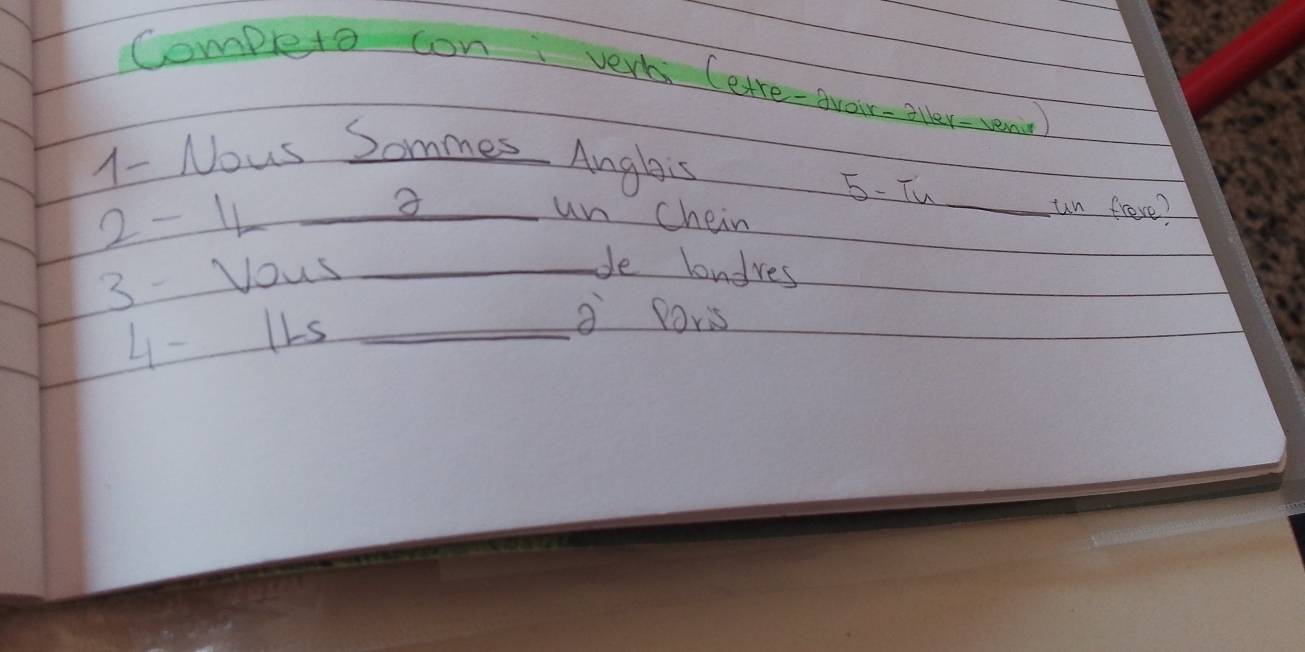 Completa con i verbi (etre-avoir-aller-venir)
1- Nous Sommes Anglais
2- IL a un Chein
3- Vous ______ de londres
4- ILs ______ à Paris
5- Tu ______ un frere?